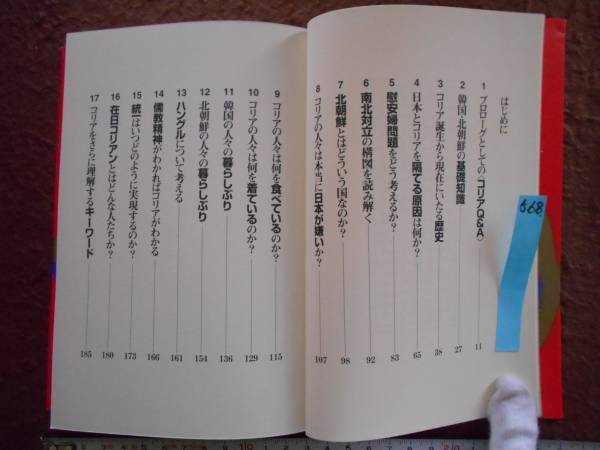 はじめに
1 プロローグとしての〈コリアQ&A〉 11
2 韓国・北朝鮮の基礎知識 27
3 コリア誕生から現在にいたる歴史 38
4 日本とコリアを隔てる原因は何か? 65
5 慰安婦問題をどう考えるか? 83
6 南北対立の構図を読み解く 92
7 北朝鮮とはどういう国なのか? 98
8 コリアの人々は本当に日本が嫌いか? 107
9 コリアの人々は何を食べているのか? 115
10 コリアの人々は何を着ているのか? 129
11 韓国の人々の暮らしぶり 136
12 北朝鮮の人々の暮らしぶり 154
13 ハングルについて考える 161
14 儒教精神がわかればコリアがわかる 166
15 統一はいつどのように実現するのか? 173
16 在日コリアンとはどんな人たちか? 180
17 コリアをさらに理解するキーワード 185
668